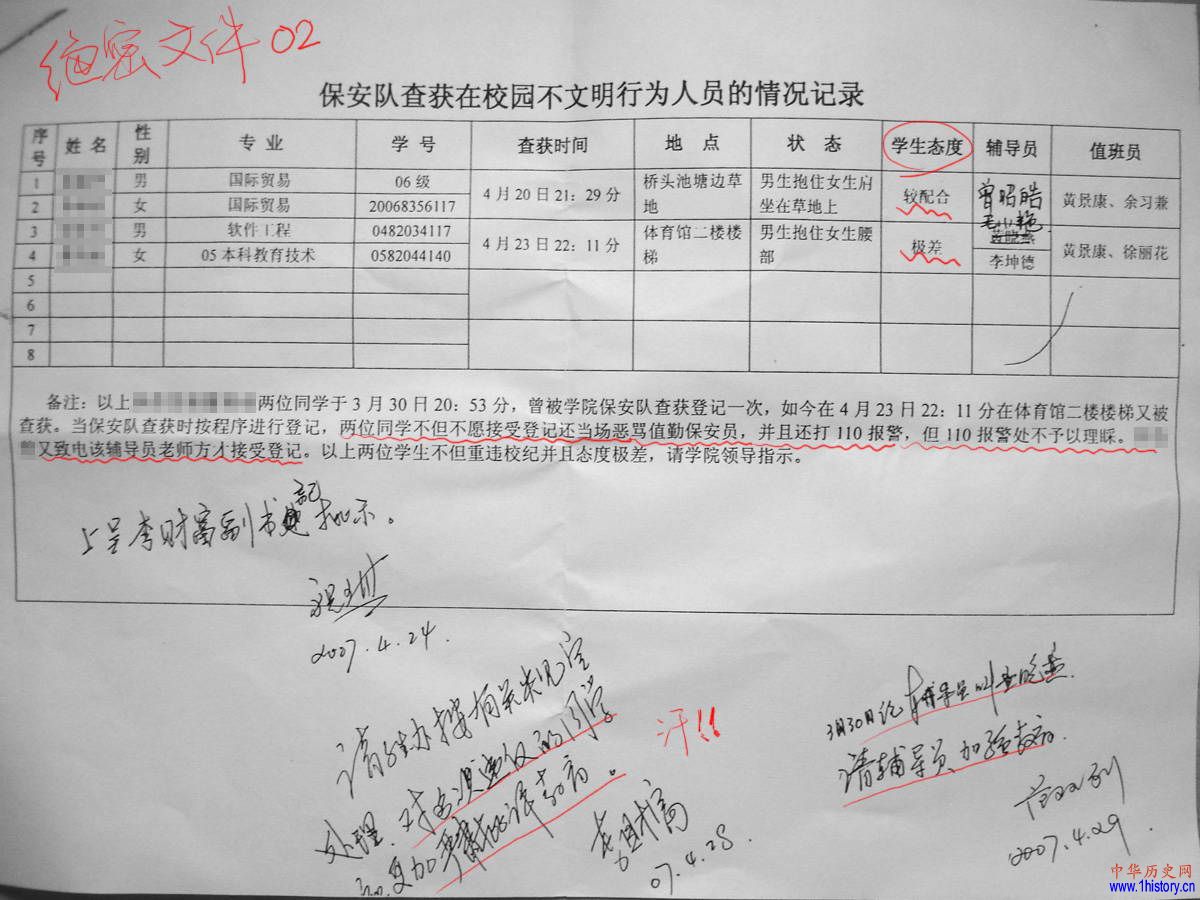 绝密文件02
保安队查获在校园不文明行为人员的情况记录
序号 姓名 性别 专业 学号 查获时间 地点 状态 学生态度 辅导员 值班员
1 男 国际贸易 06级 4月20日21：29分 桥头池塘边草地 男生抱住女生肩坐在草地上 较配合 曾昭皓 黄景康、余习兼
2 女 国际贸易 20068356117
3 男 软件工程 0482034117 4月23日22：11分 体育馆二楼楼梯 男生抱住女生腰部 极差 黄景康、徐丽花
4 女 05本科教育技术 0582044140 李坤德
5
6
7
8
备注：以上 两位同学于3月30日20：53分，曾被学院保安队查获登记一次，如今在4月23日22：11分在体育馆二楼楼梯又被
查获。当保安队查获时按程序进行登记，两位同学不但不愿接受登记还当场恶骂值勤保安员，并且还打110报警，但110报警处不予以理睬。
又致电该辅导员老师方才接受登记。以上两位学生不但重违校纪并且态度极差，请学院领导指示。
上呈李财富副书记批示。
2007.4.24.
请 办按有关规定
处理。对 的同学
严肃批评教育。
汗!!
李财富
07.4.28.
3月30日 辅导员叫黄晓燕.
请辅导员加强教育.
2007.4.29.
中华历史网
www.1history.cn